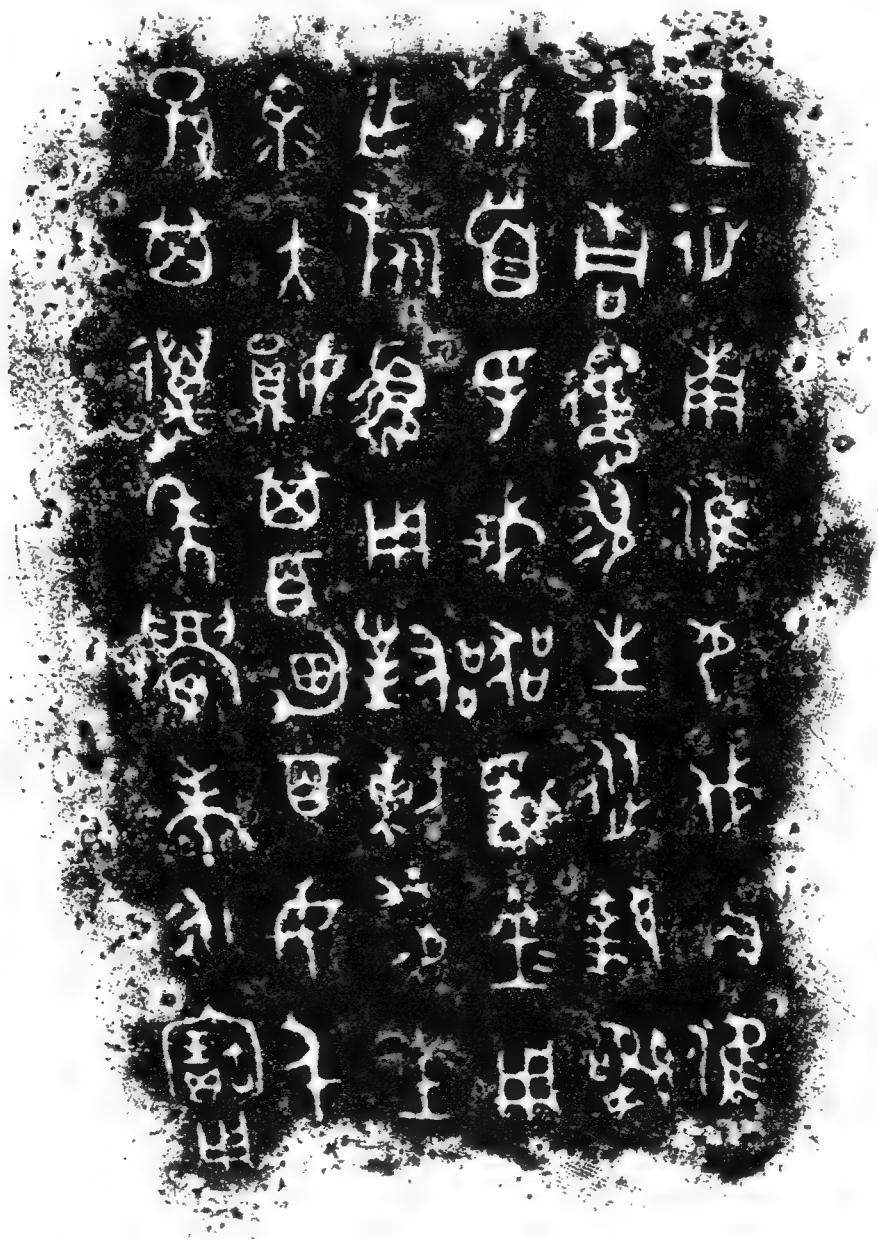 王征南淮尸伐角津
伐桐遹翏生從執訊
折首孚戎器孚金用
乍旅盨用對剌翏生
眔大妘其百男百女千
孫其邁年眉壽永寶用